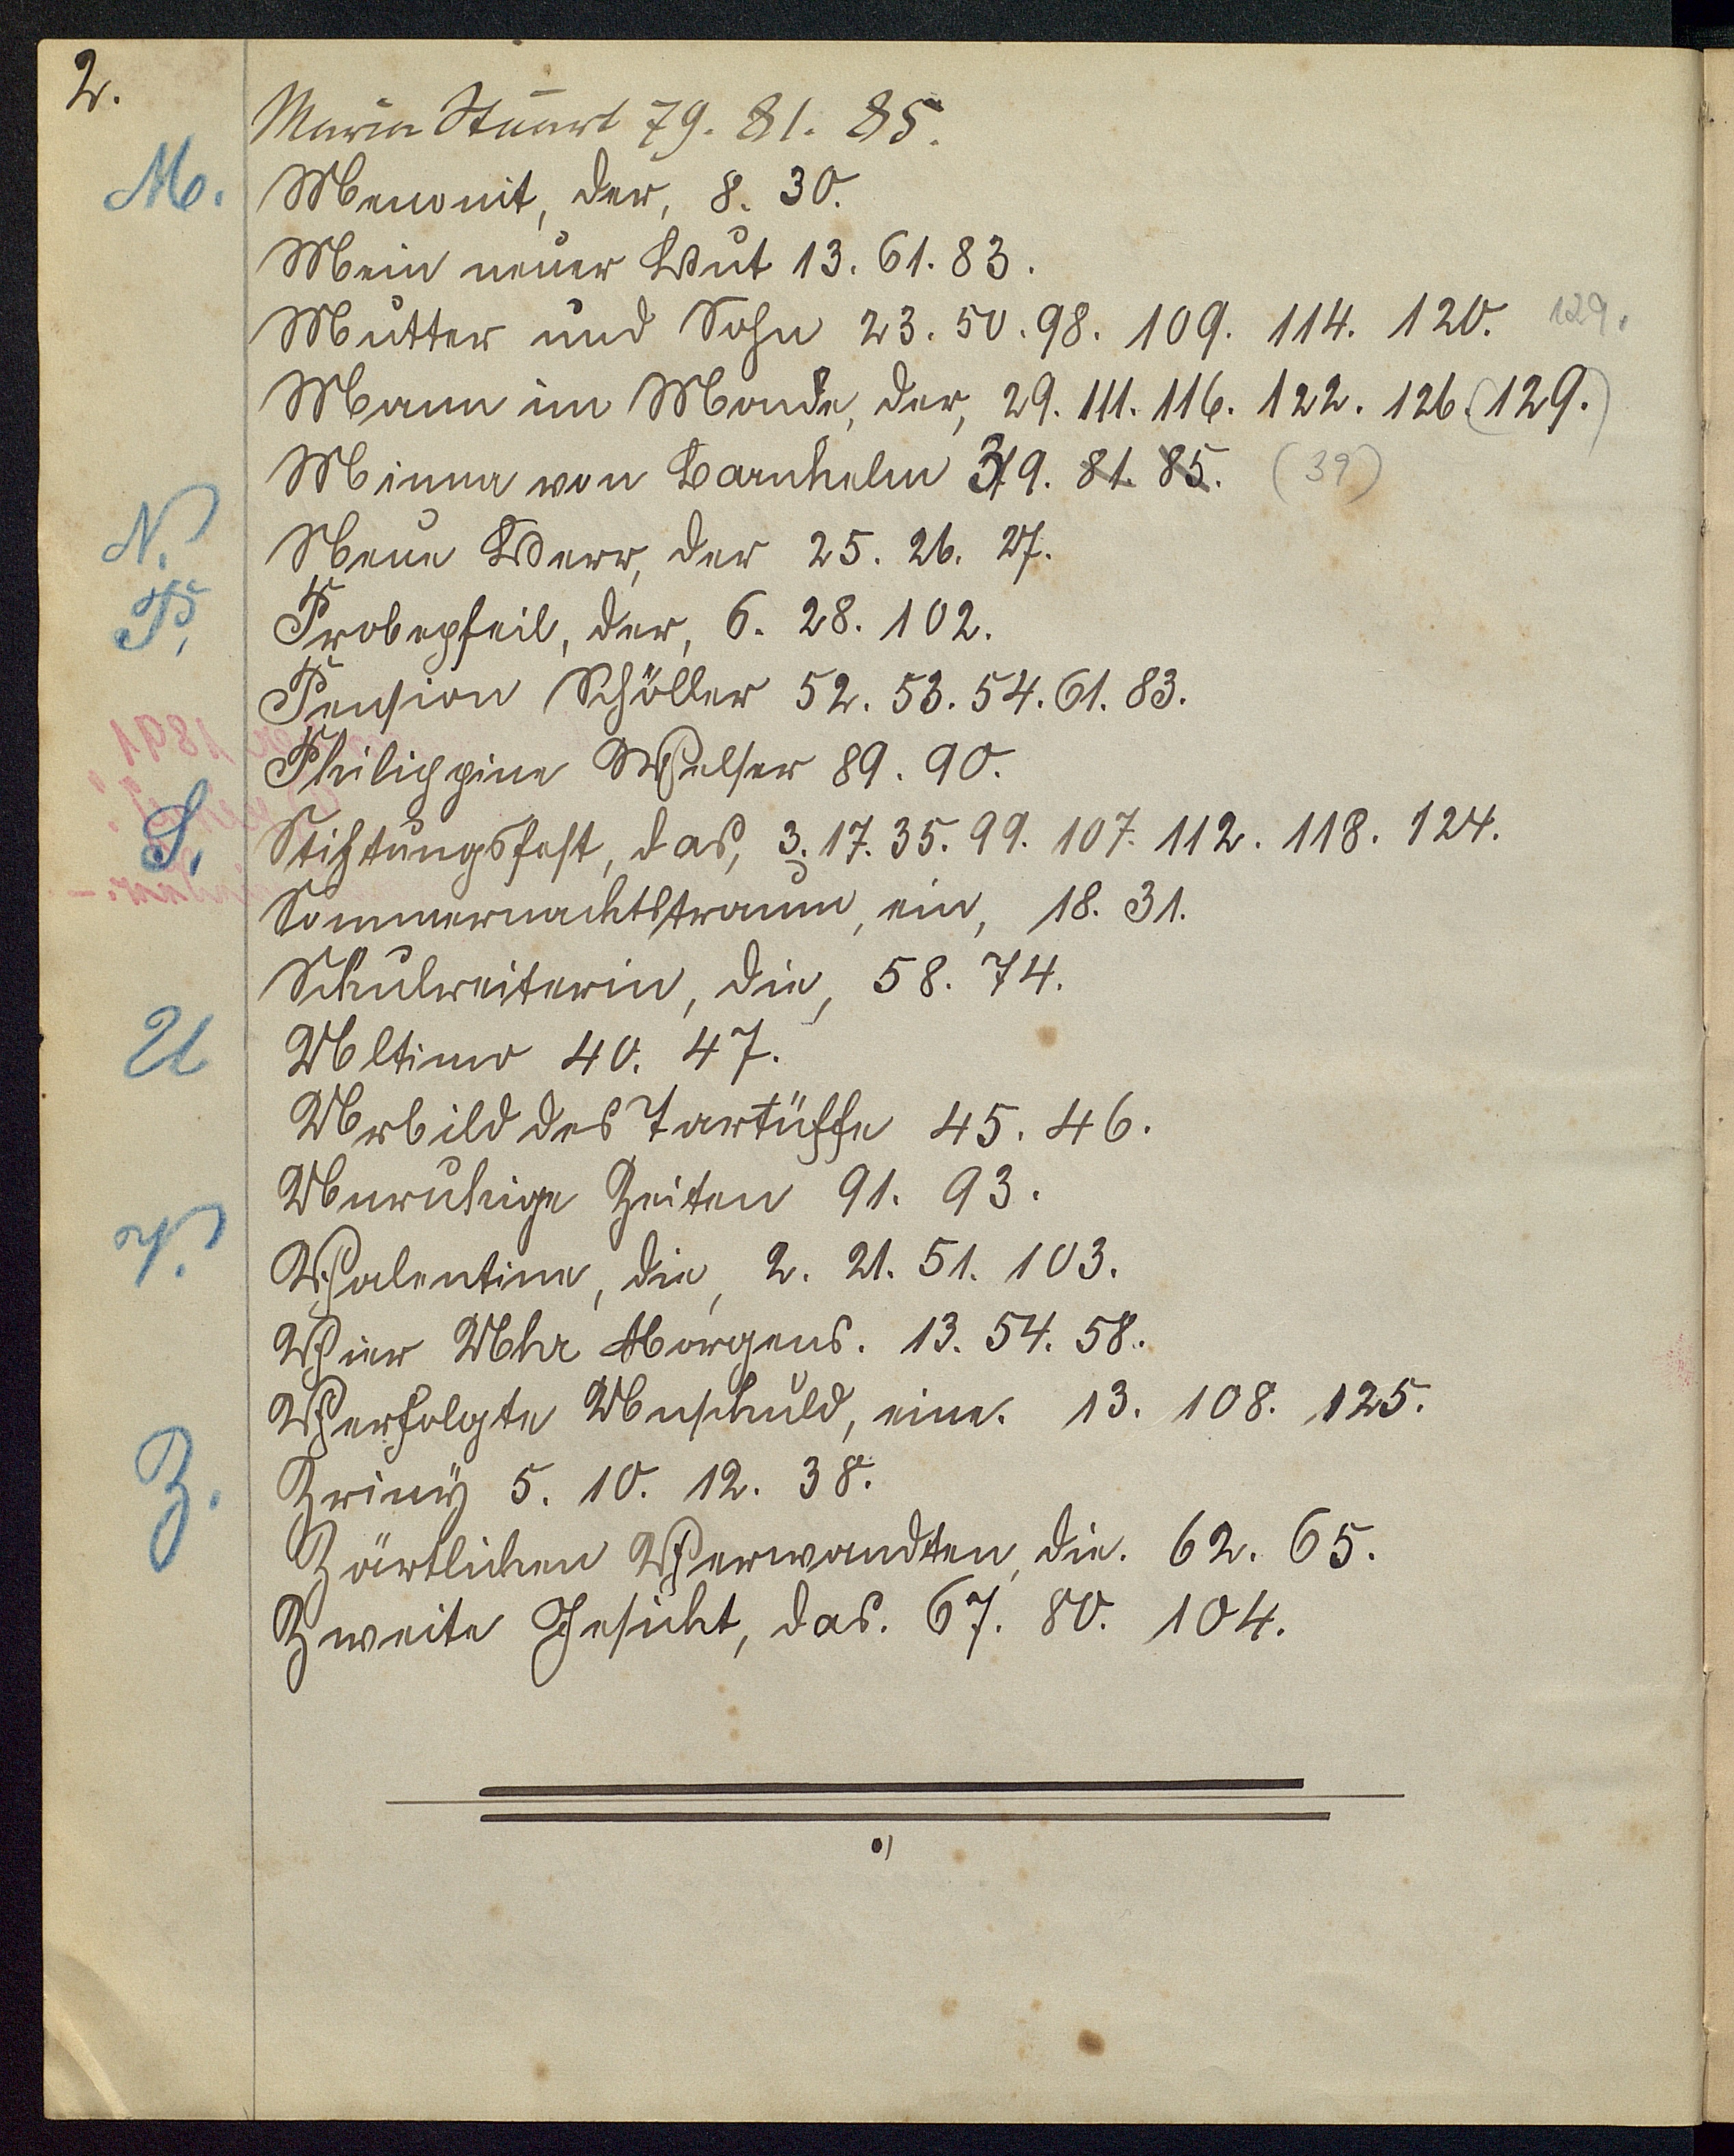 2.
Maria Stuart 79. 81. 85.
M.
Menonit, der, 8. 30.
Mein neuer Hut 13. 61. 83.
Mutter und Sohn 23. 50. 98. 109. 114. 120. 129.
Mann im Monde, der, 29. 111. 116. 122. 126. (129.)
Minna von Barnhelm 39. 81. 85. (39)
N.
Neue Herr, der 25. 26. 27.
P.
Probepfeil, der, 6. 28. 102.
Pension Schöller 52. 53. 54. 61. 83.
Philippine Welser 89. 90.
S.
Stiftungsfest, das, 3. 17. 35. 99. 107. 112. 118. 124.
Sommernachtstraum, ein, 18. 31.
Schulreiterin, die, 58. 74.
U
Ultimo 40. 47.
Urbild des Tartüffe 45. 46.
Unruhige Zeiten 91. 93.
V.
Valentine, die, 2. 21. 51. 103.
Vier Uhr Morgens. 13. 54. 58.
Verfolgte Unschuld, eine. 13. 108. 125.
Z.
Zriny 5. 10. 12. 38.
Zärtlichen Verwandten, die. 62. 65.
Zweite Gesicht, das. 67. 80. 104.